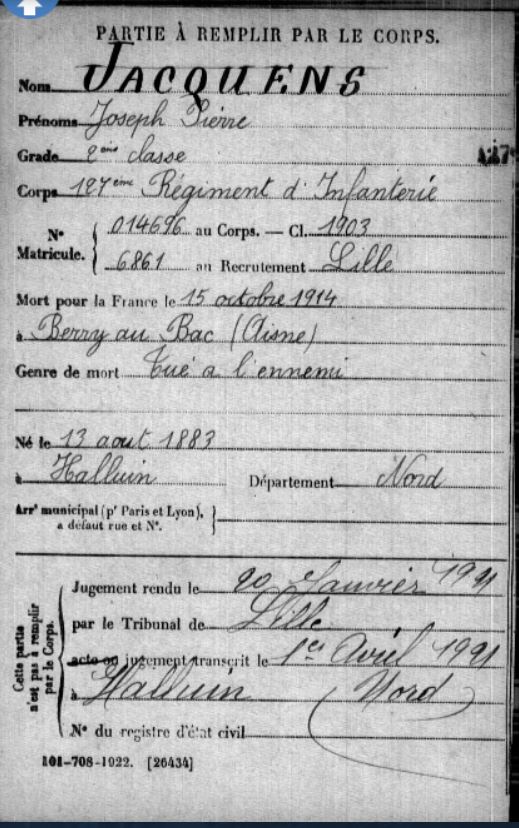 PARTIE À REMPLIR PAR LE CORPS.
Nom JACQUENS
Prénoms Joseph Pierre
Grade 2eme classe
Corps 127eme Régiment d'Infanterie
N° Matricule. { 014696 au Corps. — Cl. 1903
6861 au Recrutement Lille
Mort pour la France le 15 octobre 1914
à Berry au Bac (Aisne)
Genre de mort Tué a l'ennemi
Né le 13 aout 1883
à Halluin Département Nord
Arrt municipal (pr Paris et Lyon), à défaut rue et N°. }
Cette partie n'est pas à remplir par le Corps.
Jugement rendu le 20 Janvier 1921
par le Tribunal de Lille
acte ou jugement transcrit le 1er Avril 1921
à Halluin Nord
N° du registre d'état civil
101-708-1922. [26434]